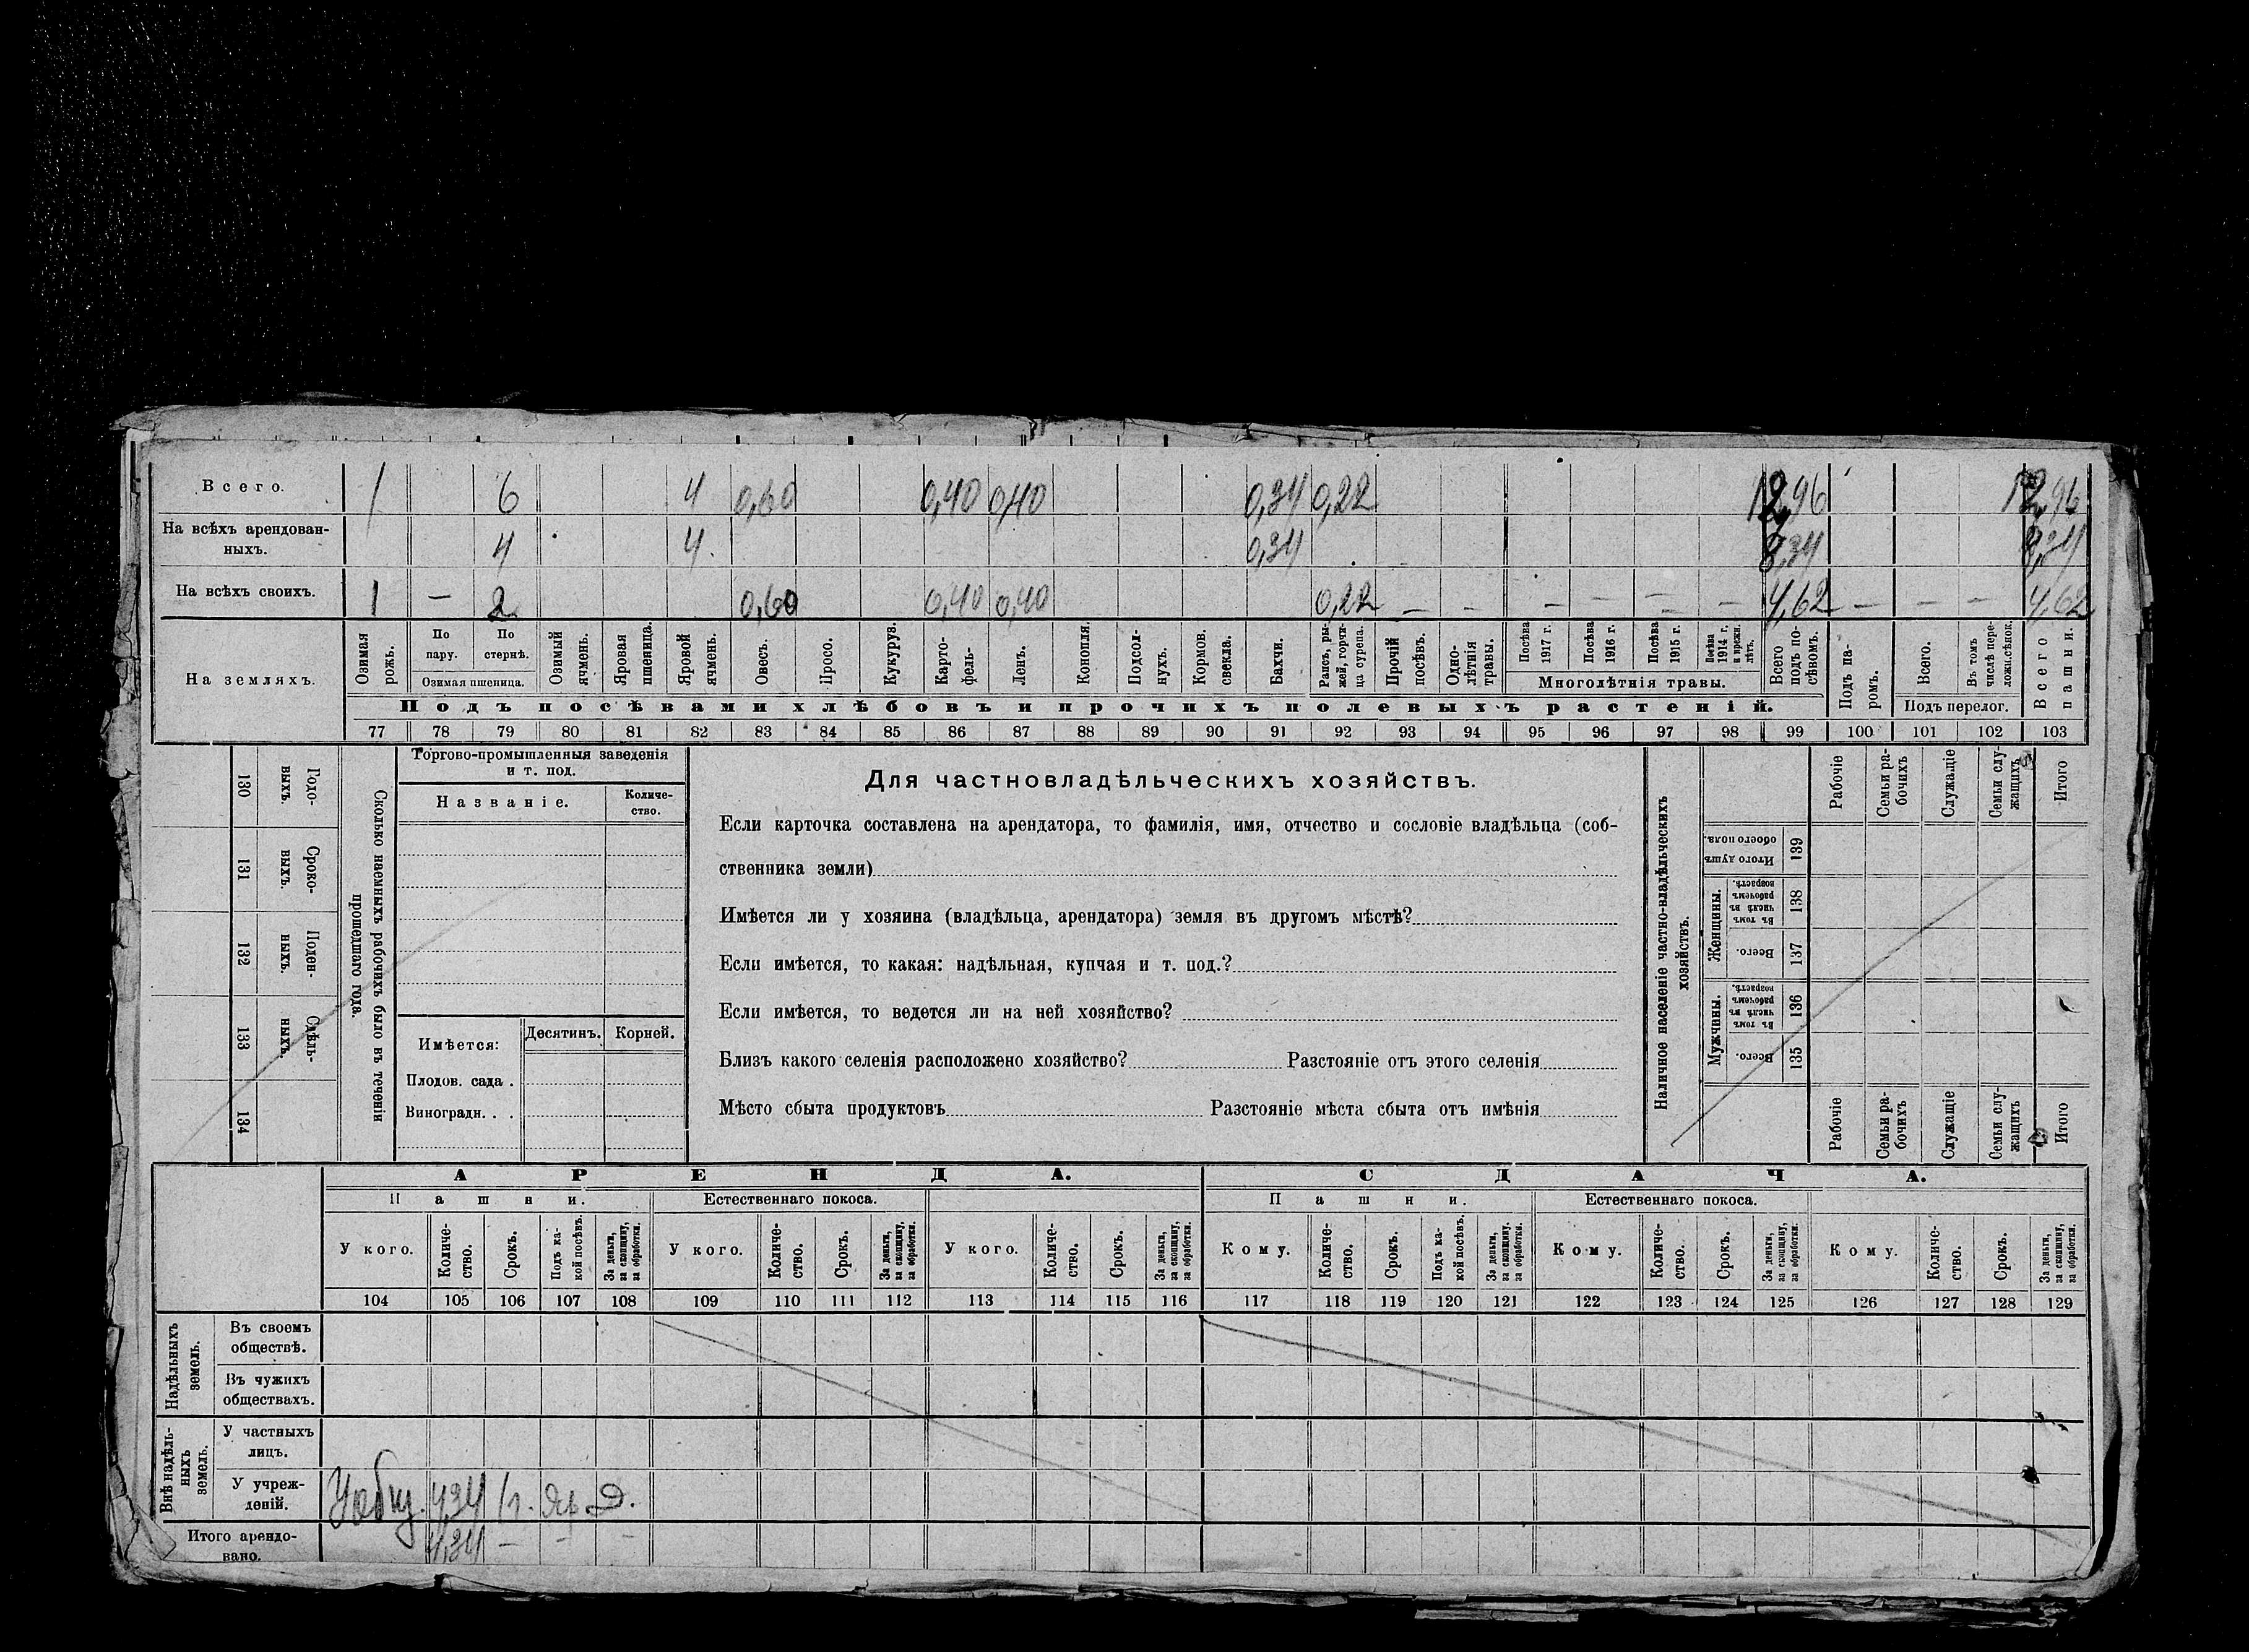 Всего. 1 6 4 0,60 0,40 0,40 0,34 0,22 12,96 12,96
На всѣхъ арендован-
ныхъ. 4 4. 0,34 8,34 8,34
На всѣхъ своихъ. 1 — 2 0,60 0,40 0,40 0,22 — — — — — — 4,62 — — — 4,62
На земляхъ.
Озимая рожь.
По пару.
По стернѣ.
Озимая пшеница.
Озимый ячмень.
Яровая пшеница.
Яровой ячмень.
Овесъ.
Просо.
Кукуруз.
Карто-
фель-
Ленъ.
Конопля.
Подсол-
нухъ.
Кормов.
свекла.
Бахчи.
Рапсъ, ры-
жей, горчи-
ца сурепа.
Прочій
посѣвъ.
Одно-
лѣтнія
травы.
Посѣва
1917 г.
Посѣва
1916 г.
Посѣва
1915 г.
Посѣва
1914 г.
и прежн.
лѣтъ.
Многолѣтнія травы.
Всего
подъ по-
сѣвомъ.
Подъ па-
ромъ.
Всего.
Въ томъ
числѣ пере-
ложн.сѣнок.
Подъ перелог.
Всего
пашни.
Подъ посѣвами хлѣбовъ и прочихъ полевыхъ растеній.
77 78 79 80 81 82 83 84 85 86 87 88 89 90 91 92 93 94 95 96 97 98 99 100 101 102 103
130 Годо-
выхъ.
131 Сроко-
выхъ.
132 Поден-
ныхъ.
133 Сдѣль-
ныхъ.
134
Сколько наемныхъ рабочихъ было въ теченіи
прошедшаго года.
Торгово-промышленныя заведенія
и т. под.
Названіе. Количе-
ство.
Имѣется: Десятинъ. Корней.
Плодов. сада .
Виноградн. . .
Для частновладѣльческихъ хозяйствъ.
Если карточка составлена на арендатора, то фамилія, имя, отчество и сословіе владѣльца (соб-
ственника земли)
Имѣется ли у хозяина (владѣльца, арендатора) земля въ другомъ мѣстѣ?
Если имѣется, то какая: надѣльная, купчая и т. под.?
Если имѣется, то ведется ли на ней хозяйство?
Близъ какого селенія расположено хозяйство? Разстояніе отъ этого селенія
Мѣсто сбыта продуктовъ Разстояніе мѣста сбыта отъ имѣнія
Наличное населеніе частно-владѣльческихъ
хозяйствъ.
Рабочіе
Семьи ра-
бочихъ
Служащіе
Семьи слу-
жащихъ
Итого
Итого душ
обоего пола. 139
Женщины.
Въ томъ
числѣ въ
рабочемъ
возрастѣ. 138
Всего. 137
Мужчины.
Въ томъ
числѣ въ
рабочемъ
возрастѣ. 136
Всего. 135
Рабочіе
Семьи ра-
бочихъ
Служащіе
Семьи слу-
жащихъ
Итого
АРЕНДА. СДАЧА.
Пашни. Естественнаго покоса. Пашни. Естественнаго покоса.
У кого.
Количе-
ство.
Срокъ.
Подъ ка-
кой посѣвъ.
За деньги,
за скопщину,
за обработки.
У кого.
Количе-
ство.
Срокъ.
За деньги,
за скопщину,
за обработки.
У кого.
Количе-
ство.
Срокъ.
За деньги,
за скопщину,
за обработки.
Кому.
Количе-
ство.
Срокъ.
Подъ ка-
кой посѣвъ.
За деньги,
за скопщину,
за обработки.
Кому.
Количе-
ство.
Срокъ.
За деньги,
за скопщину,
за обработки.
Кому.
Количе-
ство.
Срокъ.
За деньги,
за скопщину,
за обработки.
104 105 106 107 108 109 110 111 112 113 114 115 116 117 118 119 120 121 122 123 124 125 126 127 128 129
Надѣльныхъ
земель.
Въ своемъ
обществѣ.
Въ чужихъ
обществахъ.
Внѣ надѣль-
ныхъ
земель.
У частныхъ
лицъ.
У учреж-
деній. 1 г. Яр Д.
Итого арендо-
вано. — — —